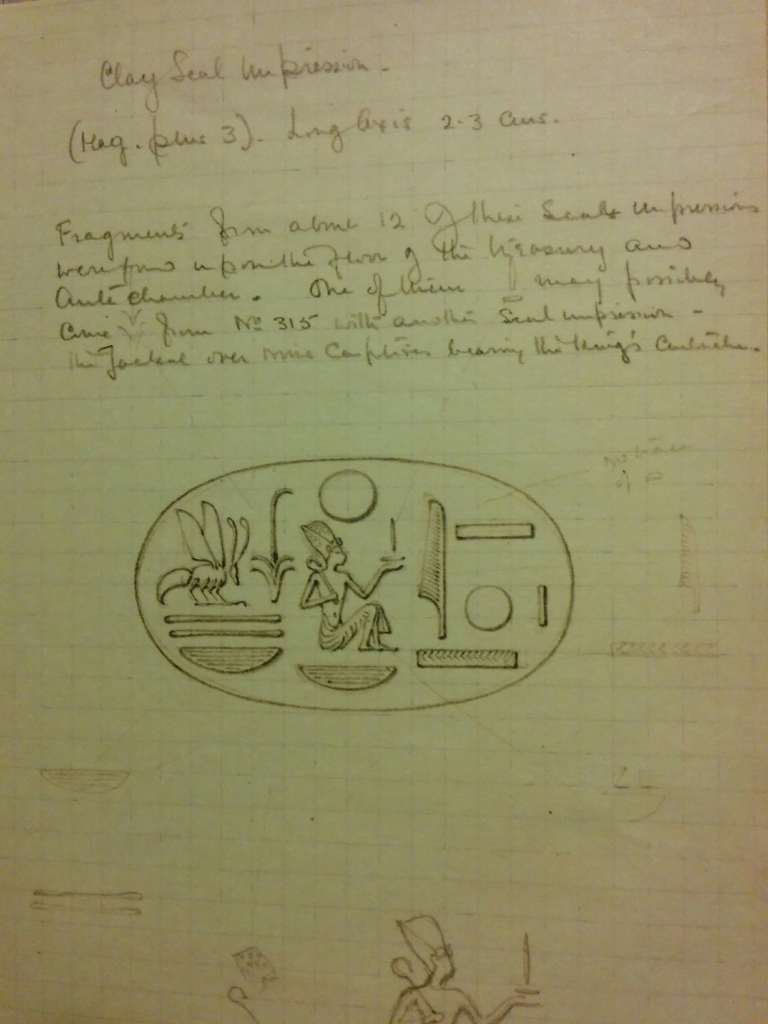 Clay Seal Impression.
(Mag. plus 3). Long Axis 2.3 cms.
Fragments from about 12 of these Seals impressions
were found upon the floor of the Treasury and
Antechamber. One of them may possibly
come from No 315 with another Seal impression -
the Jackal over nine Captives bearing the King's Cartouche.
no trace
of